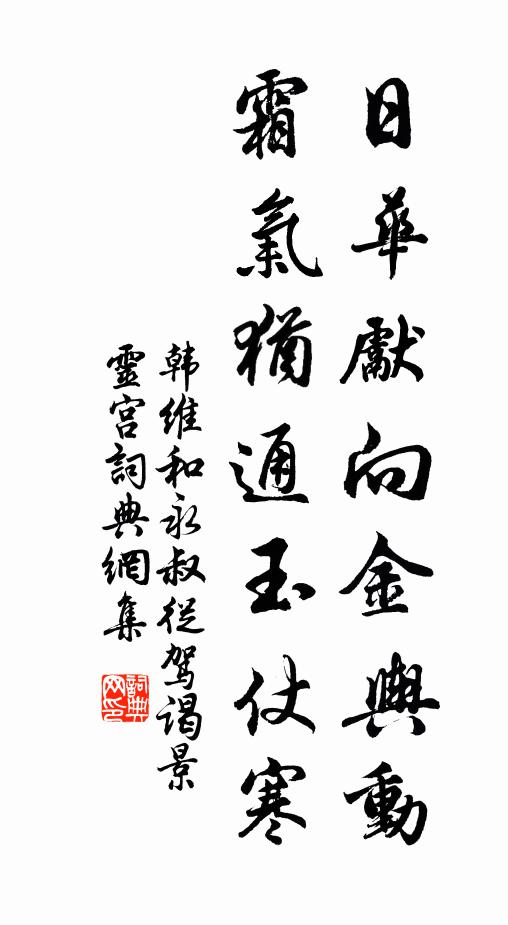 日華獻向金輿動
霜氣猶通玉仗寒
韩維和永叔從駕謁景
靈宫詞典網集
詞典
网印